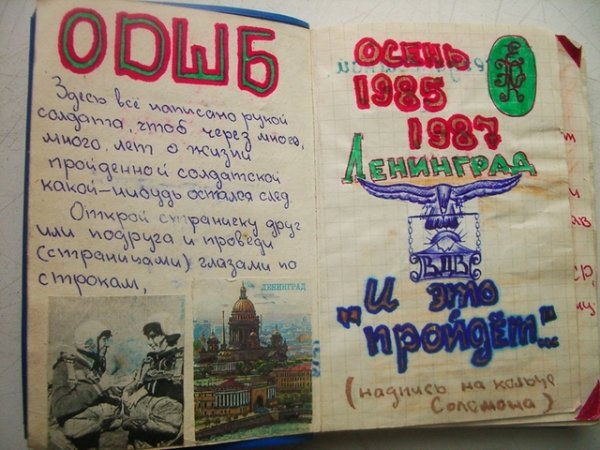 ОДШБ
Здесь всё написано рукой
солдата, чтоб через много,
много лет о жизни
пройденной солдатской
какой-нибудь остался след.
Открой страницу друг
или подруга и проведи
(страницами) глазами по
строкам,
ЛЕНИНГРАД
ОСЕНЬ
1985
1987
ЛЕНИНГРАД
ВДВ
"И это
пройдёт..."
(надпись на кольце
Соломона)